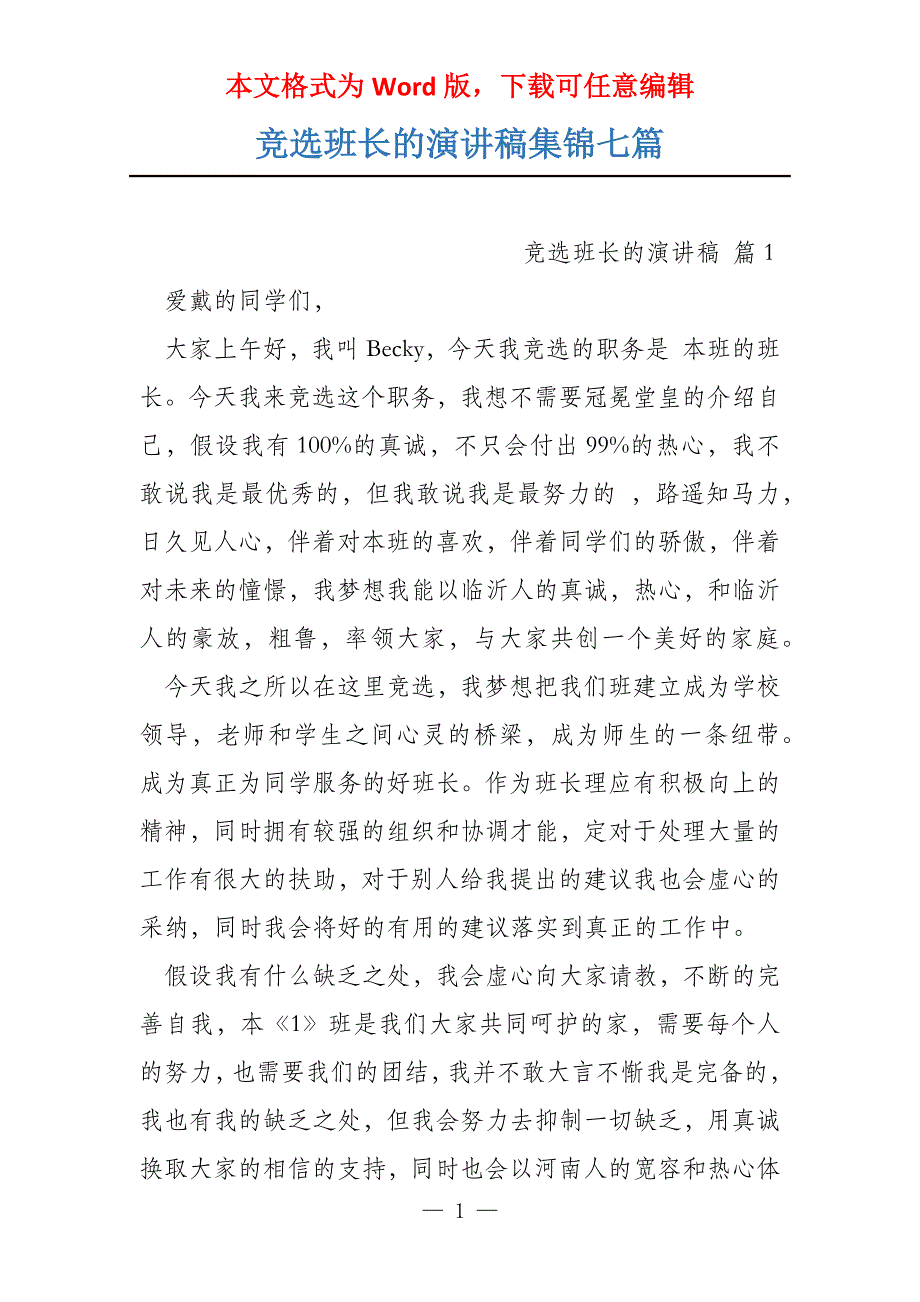 本文格式为 Word 版，下载可任意编辑
竞选班长的演讲稿集锦七篇
竞选班长的演讲稿 篇 1
爱戴的同学们，
大家上午好，我叫 Becky，今天我竞选的职务是 本班的班
长。今天我来竞选这个职务，我想不需要冠冕堂皇的介绍自
己，假设我有 100%的真诚，不只会付出 99%的热心，我不
敢说我是最优秀的，但我敢说我是最努力的 ，路遥知马力，
日久见人心，伴着对本班的喜欢，伴着同学们的骄傲，伴着
对未来的憧憬，我梦想我能以临沂人的真诚，热心，和临沂
人的豪放，粗鲁，率领大家，与大家共创一个美好的家庭。
今天我之所以在这里竞选，我梦想把我们班建立成为学校
领导，老师和学生之间心灵的桥梁，成为师生的一条纽带。
成为真正为同学服务的好班长。作为班长理应有积极向上的
精神，同时拥有较强的组织和协调才能，定对于处理大量的
工作有很大的扶助，对于别人给我提出的建议我也会虚心的
采纳，同时我会将好的有用的建议落实到真正的工作中。
假设我有什么缺乏之处，我会虚心向大家请教，不断的完
善自我，本《1》班是我们大家共同呵护的家，需要每个人
的努力，也需要我们的团结，我并不敢大言不惭我是完备的，
我也有我的缺乏之处，但我会努力去抑制一切缺乏，用真诚
换取大家的相信的支持，同时也会以河南人的宽容和热心体
— 1 —